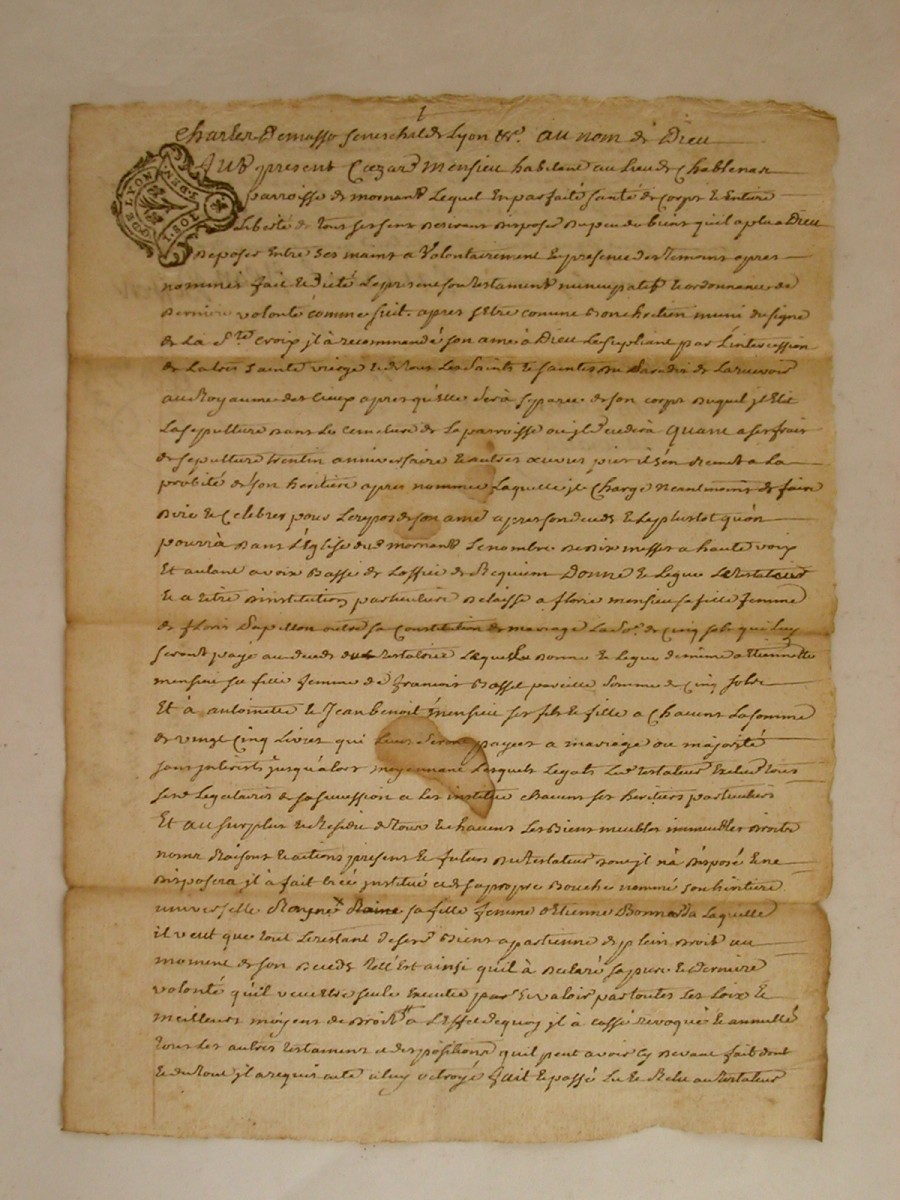 1
Charles Demasso seneschal de Lyon &c. au nom de Dieu
GNAL. DE LYON
1. SOL 4. DEN.
Fut present Cæzard Mensieu habitant au lieu de Chablenas
parroisse de mornant Lequel En parfaite santé de corps & Entiere
Liberté de tous ses sens desirant disposer du peu du biens qu'il a plu a Dieu
deposer Entre ses mains a Volontairement En presence des temoins apres
nommés fait & dicté Le present son testament nuncupatif & ordonnance de
derniere volonté comme suit. apres s'Etre comme bon chretien muni du signe
de La Ste croix jl à recommendé son ame à Dieu Le supliant par L'intercession
de La tres sainte vierge & de tous Les saints & saintes du Paradis de La recevoir
au Royaume des Cieux apres qu'elle sera separee de son corps duquel jl Elit
La sepulture dans Le cemetiere de La parroisse ou jl decedera quant a ses frais
de sepulture trentin anniversaire & autres œuvres pies il s'en remet a La
probité de son heritiere apres nommée Laquelle jl Charge neantmoins de faire
dire & Celebrer pour Le repos de son ame apres son deces & Le plustot qu'on
pourra dans L'Eglise dud mornant Le nombre de dix messes a haute voix
Et autant a voix Basse de L'office de Requiem Donne & Legue Le testateur
& a titre d'institution particuliere delaisse a florie mensieu sa fille femme
de floris Papillon outre sa Constitution de mariage La so. de Cinq sols qui Luy
seront payé au deces du testateur Lequel donne & Legue de même a Etiennette
mensieu sa fille femme de francois Bassel pareille somme de Cinq solds
Et à antoinette & Jean benoit mensieu ses fils & fille a Chacun La somme
de vingt Cinq Livres qui Leur seront payés a mariage ou majorité
sans jnterests jusqu'alors moyennant Lesquels Legats Led testateur Exclud tous
sesd Legataires de sa succession & Les institue Chacuns ses heritiers particuliers
Et au surplus & Residu de tous & chacuns Les Biens meubles immeubles droits
noms Raisons & actions presents & futurs du testateur dont jl n'a disposé & ne
disposera jl à fait créé jnstitué & de sa propre Bouche nommé son heritiere
universelle sa fille femme d'Etienne Bonnard a Laquelle
il veut que tout Le restant de sesd Biens apartienne de plein droit au
moment de son deceds tell Est ainsi quil à declaré sa pure & derniere
volonté qu'il veut Etre seule Executée pour Et valoir par toutes Les Loix &
meilleurs moyens de droit a L'Effet de quoy jl à cassé revoqué & annullé
tous Les autres testament & dispositions qu'il peut avoir cy devant fait dont
& du tout jl a requis acte a luy octroyé fait & passé Lu & Relu au testateur